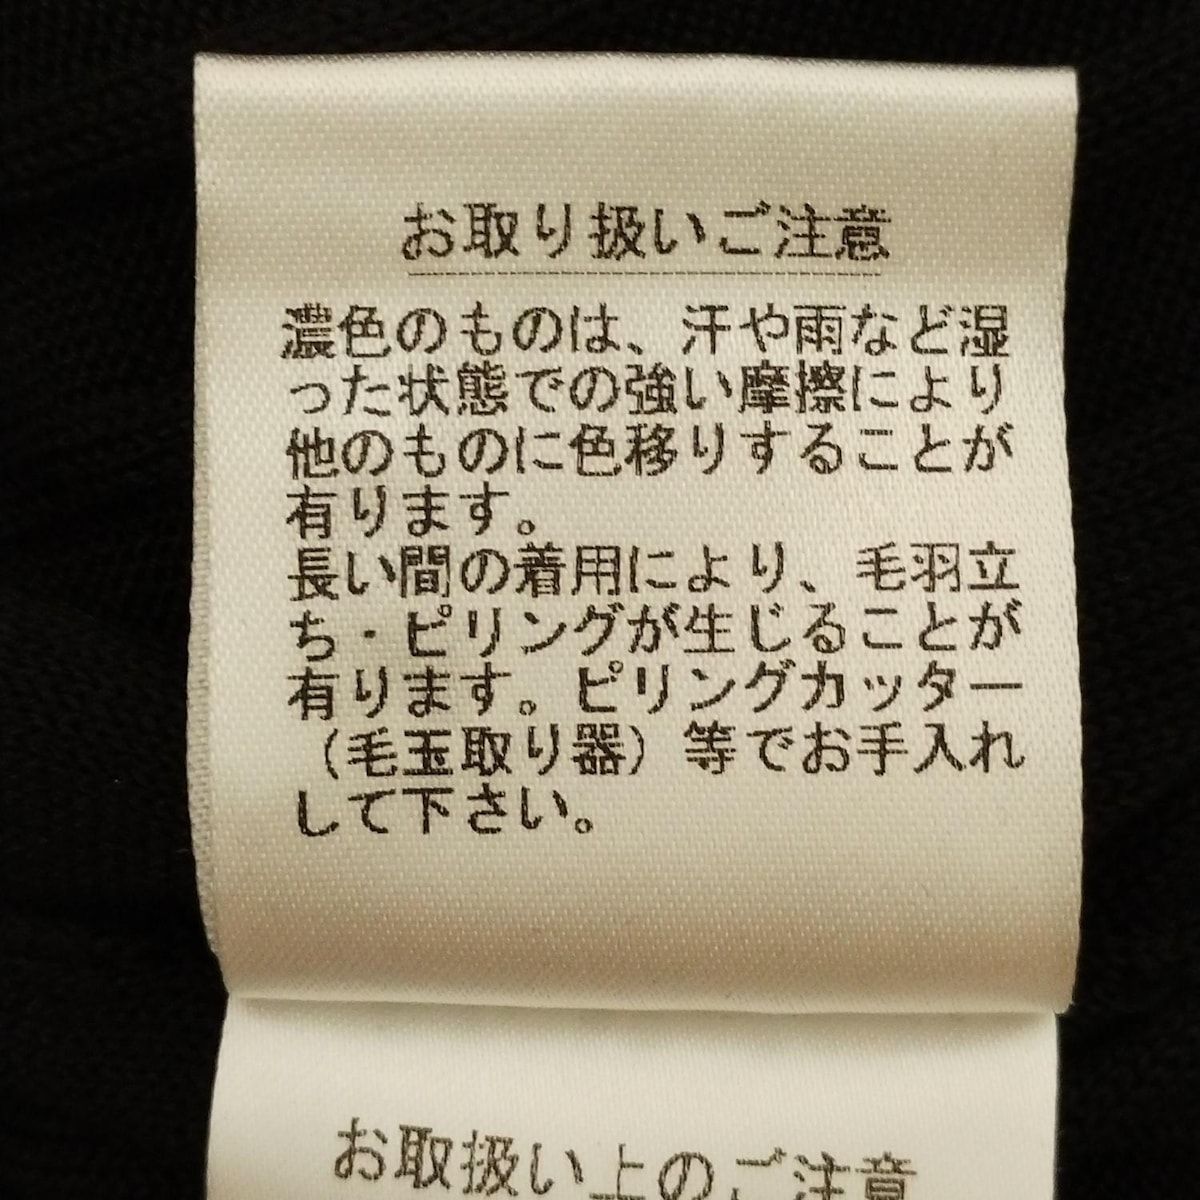 お取り扱いご注意
濃色のものは、汗や雨など湿
った状態での強い摩擦により
他のものに色移りすることが
有ります。
長い間の着用により、毛羽立
ち・ピリングが生じることが
有ります。ピリングカッター
（毛玉取り器）等でお手入れ
して下さい。
お取扱い上のご注意